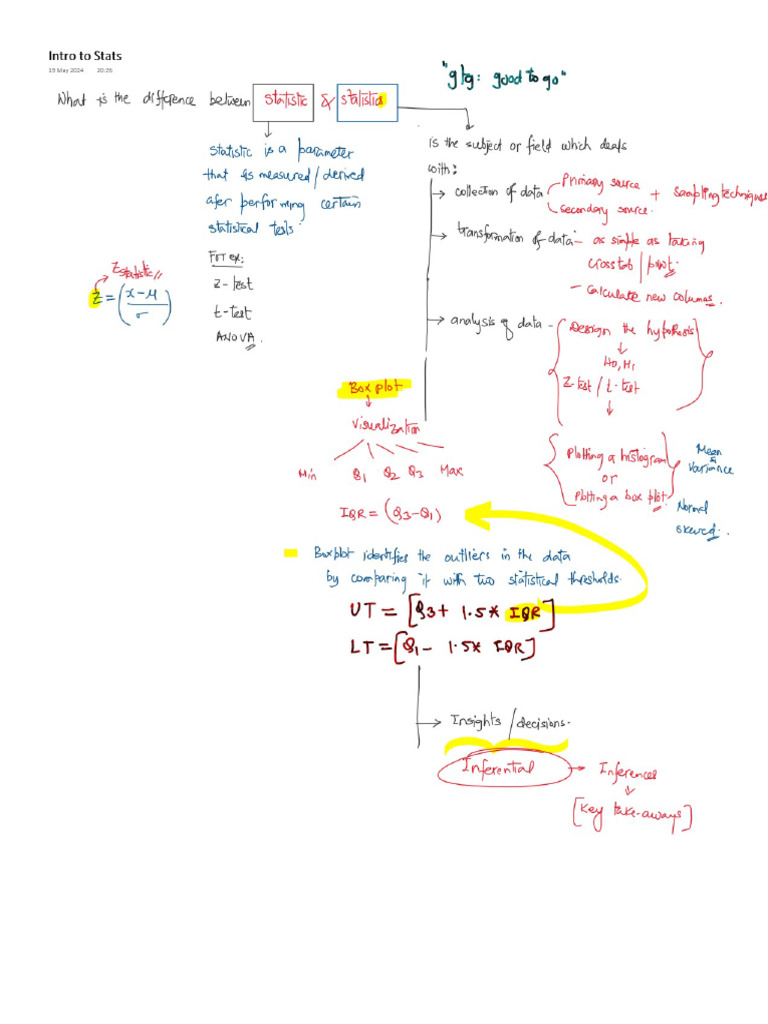 Intro to Stats
19 May 2024 20:26
"gtg: good to go"
What is the difference between statistic & statistics
statistic is a parameter
that is measured/derived
afer performing certain
statistical tests.
For ex:
Z-test
t-test
ANOVA.
Z statistic
Z = (x-μ / σ)
is the subject or field which deals
with:
→ collection of data
Primary source
secondary source.
+ sampling techniques
→ transformation of data - as simple as taking
crosstab / pivot.
- calculate new columns.
→ analysis of data - Design the hypothesis
↓
H0, H1
Z-test / t-test
↓
Plotting a histogram
or
Plotting a box plot.
Mean
&
Variance
Normal
skewed.
Box plot
↓
Visualization
Min Q1 Q2 Q3 Max
IQR = (Q3-Q1)
Boxplot identifies the outliers in the data
by comparing it with two statistical thresholds.
UT = [Q3 + 1.5* IQR]
LT = [Q1 - 1.5* IQR]
→ Insights / decisions.
Inferential → Inferences
↓
[Key take-aways]